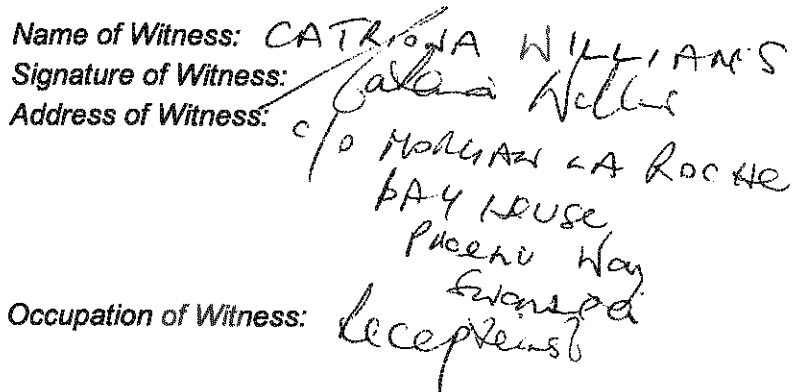 Name of Witness: CATRIONA WILLIAMS
Signature of Witness: Catriona Williams
Address of Witness:
c/o MORGAN LA ROCHE
BAY HOUSE
PHOENIX Way
Swansea
Occupation of Witness: Receptionist